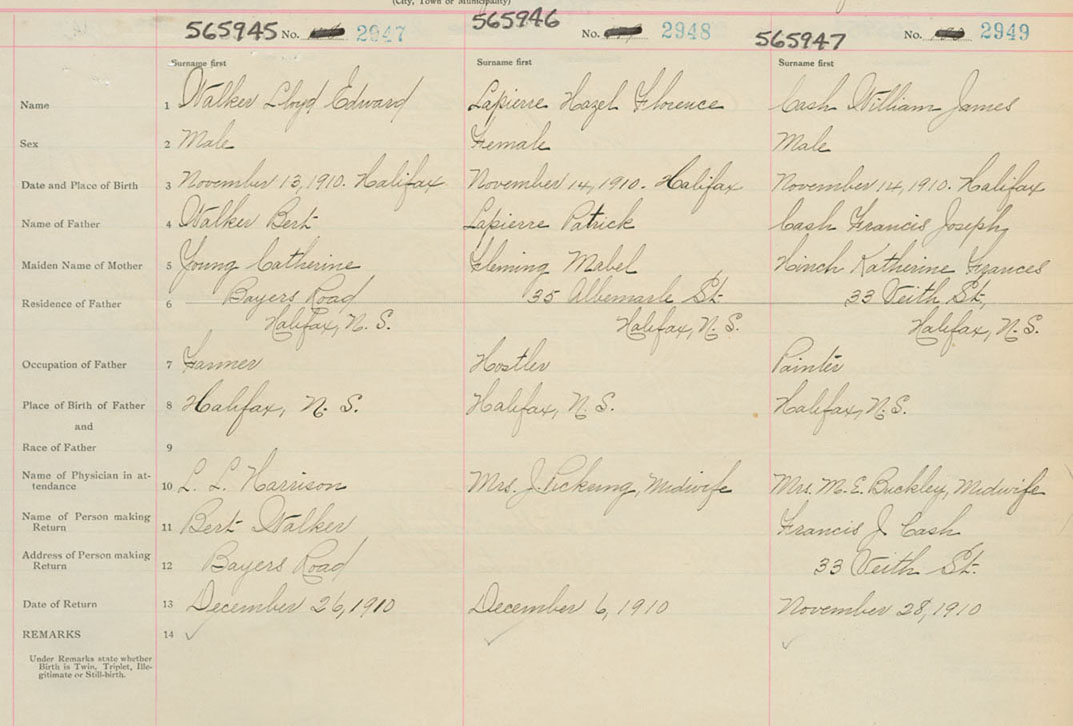 (City, Town or Municipality)
565945 No. 2947
565946 No. 2948
565947 No. 2949
Surname first Surname first Surname first
Name 1 Walker Lloyd Edward Lapierre Hazel Florence Cash William James
Sex 2 Male Female Male
Date and Place of Birth 3 November 13, 1910. Halifax November 14, 1910. Halifax November 14, 1910. Halifax
Name of Father 4 Walker Bert Lapierre Patrick Cash Francis Joseph
Maiden Name of Mother 5 Young Catherine Fleming Mabel Hinch Katherine Frances
Residence of Father 6 Bayers Road 35 Albemarle St. 33 Veith St.,
Halifax, N. S. Halifax, N. S. Halifax, N. S.
Occupation of Father 7 Farmer Hostler Painter
Place of Birth of Father 8 Halifax, N. S. Halifax, N. S. Halifax, N. S.
and
Race of Father 9
Name of Physician in at-
tendance 10 L. L. Harrison Mrs. J. Pickering, Midwife Mrs. M. E. Buckley, Midwife
Name of Person making
Return 11 Bert Walker Francis J. Cash
Address of Person making
Return 12 Bayers Road 33 Veith St.
Date of Return 13 December 26, 1910 December 6, 1910 November 28, 1910
REMARKS 14
Under Remarks state whether
Birth is Twin, Triplet, Ille-
gitimate or Still-birth.